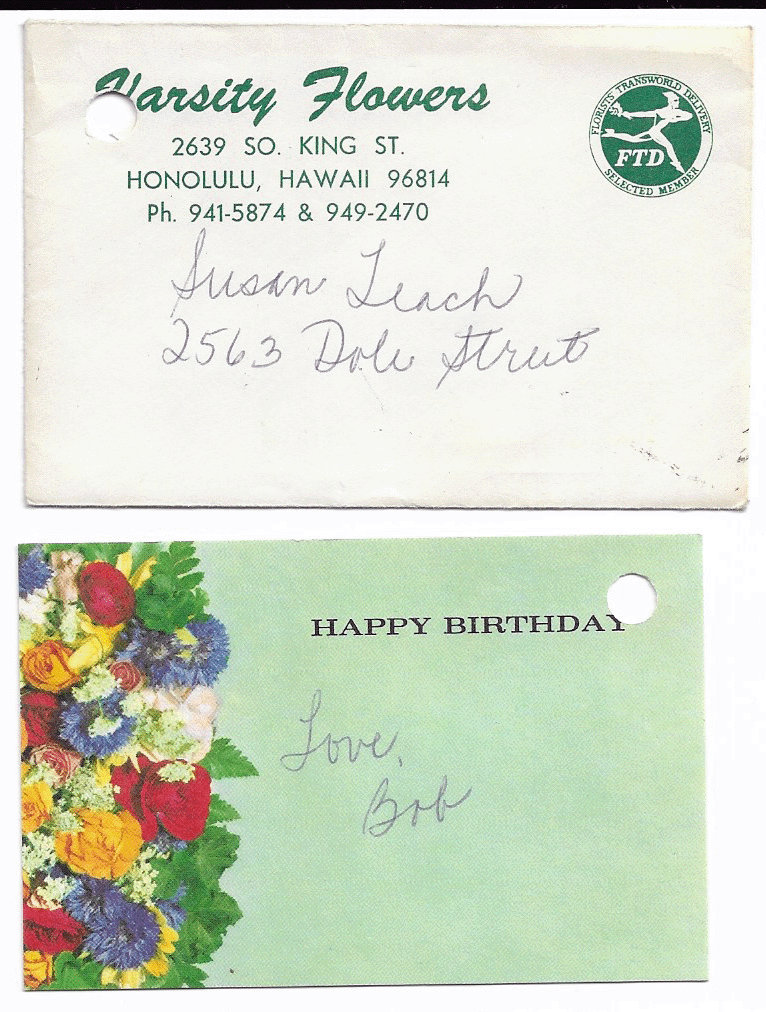 Varsity Flowers
2639 SO. KING ST.
HONOLULU, HAWAII 96814
Ph. 941-5874 & 949-2470
FLORISTS TRANSWORLD DELIVERY
FTD
SELECTED MEMBER
Susan Leach
2563 Dole Street
HAPPY BIRTHDAY
Love,
Bob